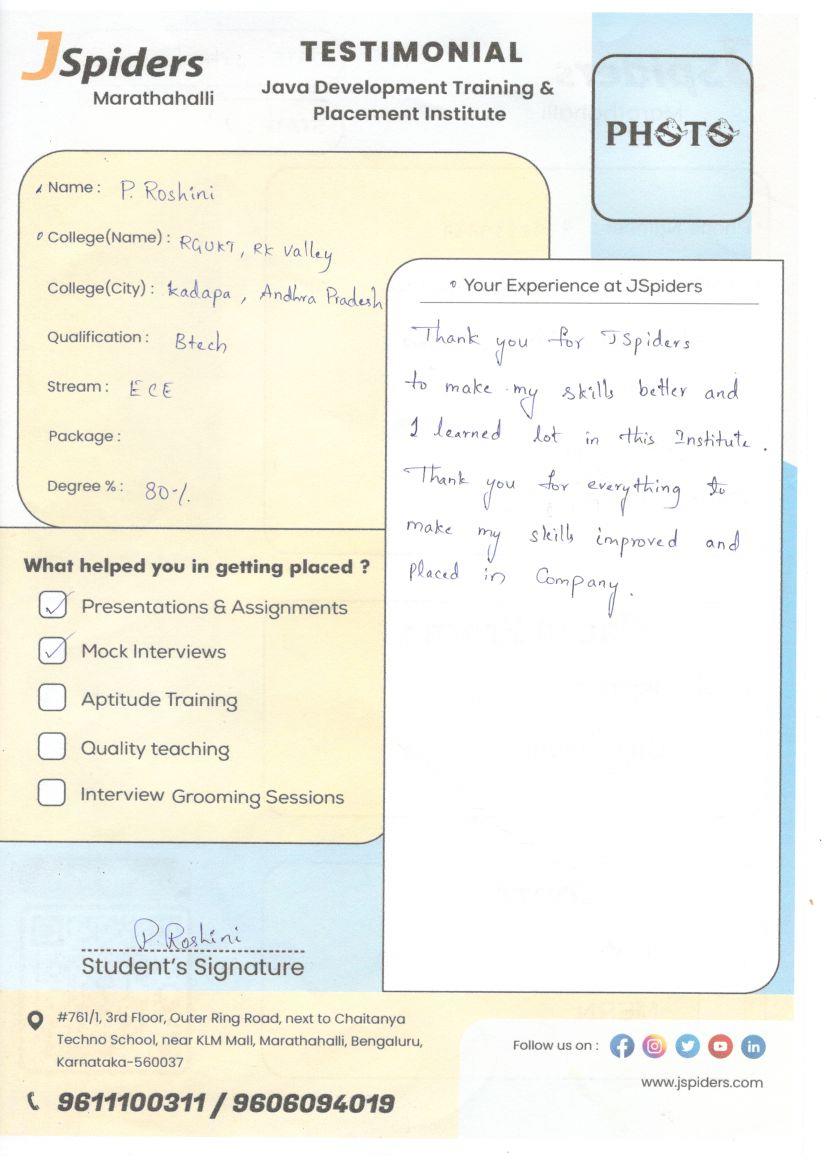 JSpiders
Marathahalli
TESTIMONIAL
Java Development Training &
Placement Institute
PHOTO
Name : P. Roshini
College(Name) : RGUKT, RK Valley
College(City) : Kadapa , Andhra Pradesh
Qualification : Btech
Stream : ECE
Package :
Degree % : 80%
Your Experience at JSpiders
Thank you for JSpiders
to make my skills better and
I learned lot in this Institute.
Thank you for everything to
make my skills improved and
placed in Company.
What helped you in getting placed ?
Presentations & Assignments
Mock Interviews
Aptitude Training
Quality teaching
Interview Grooming Sessions
P. Roshini
Student's Signature
#761/1, 3rd Floor, Outer Ring Road, next to Chaitanya
Techno School, near KLM Mall, Marathahalli, Bengaluru,
Karnataka-560037
9611100311 / 9606094019
Follow us on :
www.jspiders.com